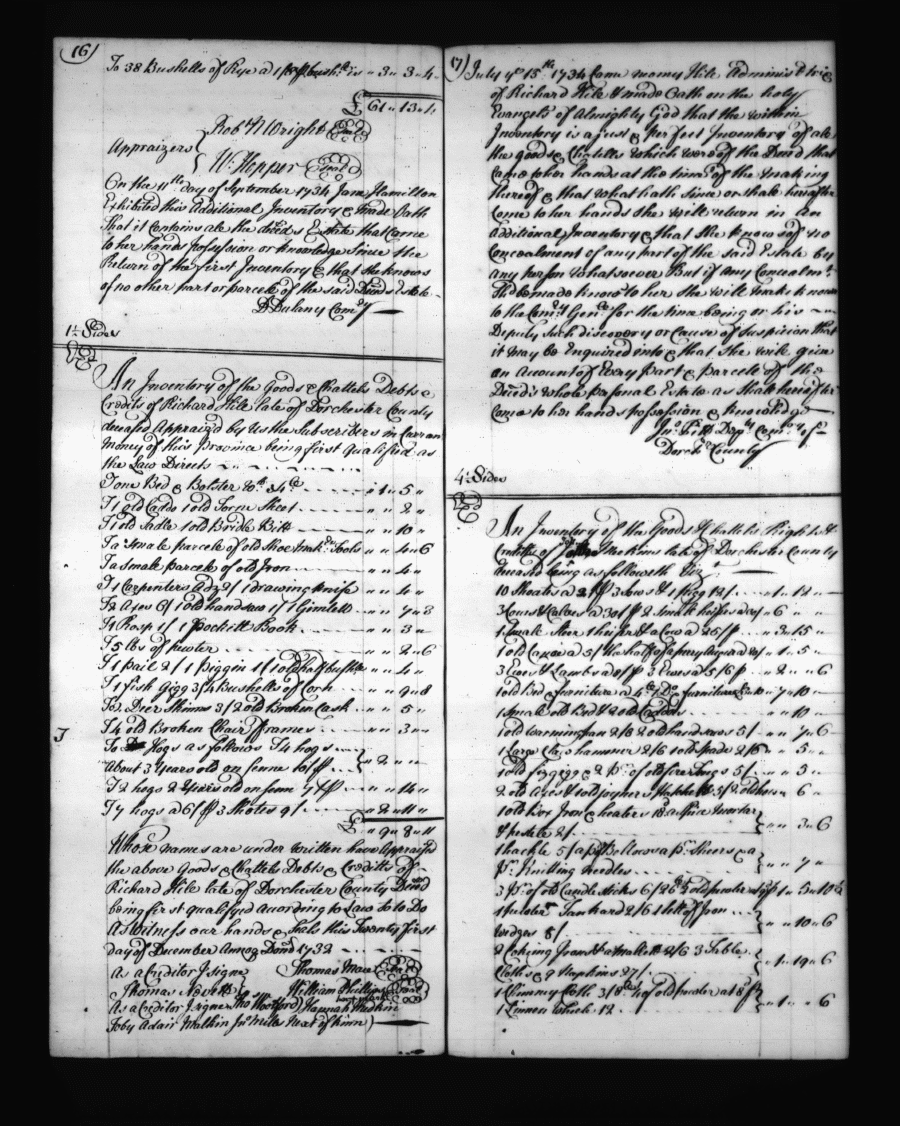 (16)
To 38 Bushells of Rye a 1/8 p bushll is " 3 " 3 " 4
£ 61 " 13 " 1
Robt Wright Seal
Appraizers
W. Hopper Seal
On the 11th day of September 1734 Jane Hamilton
Exhibited this Additional Inventory & made Oath
That it Contains all the deceds Estate that Came
to her hands possession or knowledge Since the
Return of the first Inventory & that she knows
of no other part or parcele of the said Deceds Estate
D Dulany Comry
1¼ Sides
An Inventory of the Goods & Chattels Debts &
Credits of Richard Hile late of Dorchester County
deceased Appraized by us the Subscribers in Curran
Money of this Province being first qualified as
the Law Directs
To one Bed & Bolster " 1 " 5 "
T 1 old Caddo 1 old Torn Sheet " " 2 "
T 1 old Sadle 1 old Bridle Bitt " " 10 "
T a Smale parcele of old Shoe Makrs Tools " " 4 " 6
T a Small parcele of old Iron " " 4 "
T 1 Carpenters Adz 2/ 1 drawing knife " " 4 "
T 2 Axes 6/ 1 old handsaw 1/ 1 Gimlett " " 7 " 3
T 4 Rasp 1/ 1 pockitt Book " " 3 "
T 5 lbs of pewter " " 2 " 6
T 1 pail 2/ 1 piggin 1/ 1 old half bushle " " 4 "
T 1 fish Gigg 3/4 Bushells of Corn " " 9 " 8
To 2 Deer Skinns 3/ 2 old Broken Cask " " 5 "
T 4 old Broken Chair frames " " 3 "
To Hogs as follows T 4 hogs
about 3 Years old " 2 " "
T 2 hogs 2 Years old " " 14 "
T 7 hogs a 6/ p 3 Shotes 9/ " 2 " 11 "
£ " 9 " 8 " 11
Whose names are under written have Appraised
the above Goods & Chattels Debts & Creditts of
Richard Hile late of Dorchester County Deced
being first qualifyd acording to Law to to Do
As witness our hands & Seals this Twenty first
day of December Annoq Domi 1732
As a Creditor I signe Thomas Mace
Thomas Nevett William Phillips
As a Creditor I signe Tho Woolford Hannah
Toby Adair Next of Kinn
(17)
July ye 15th 1734 Came money Hile Administratrix
of Richard Hile & made Oath on the holy
Evangels of Almighty God that the within
Inventory is a Just & Perfect Inventory of all
the goods & Chattells which were of the Deced that
Came to her hands at the time of the making
thereof & that what hath Since or shall hereafter
Come to her hands she will return in an
Additional Inventory & that she knows of no
Concealment of any part of the said Estate by
any person whatsoever But if any Concealmt
Shd be made known to her she will make known
to the Comry Genll for the time being or his
Deputy such discovery or Cause of Suspicion that
it may be Enquired into & that she will give
an Account of Every part & parcele of the
Deceds whole personal Estate as Shall hereafter
Come to her hands possession & knowledge
Jno Pitt Depty Comry of
Dorchr County
4¼ Sides
An Inventory of the Goods & Chattels Rights &
Creditts of late of Dorchester County
deceased being as followeth Viz
10 Shoats a 2/ p 3 sows & 1 pigg 12/ " 1 " 12 "
3 Cows & Calves a 30/ p 2 Small heifers " 6 " "
1 Small Steer 1 heifer & a Cow a 25/ p " 3 " 15 "
1 old Canoe a 5/ the half of " 1 " 5 "
3 Ewes & Lambs 3 Ewes a 5/6 p " 2 " " 6
1 old Bed & furniture a 4 furniture " 7 " 10 "
1 Small old Bed & 2 old Caddos " " 10 "
1 old warming pan 2/6 2 old handsaws 5/ " " 7 " 6
1 Large Claw hammer 2/6 1 old Spade 2/6 " " 5 "
1 old fizgigg & 2 ps of old fire tongs 5/ " " 5 "
2 old Axes & 1 old joyners Hatchett 5/ " 6 "
1 old Box Iron & heaters 18d a Spice Mortar
& pestle 2/ " " 3 " 6
1 hackle 5/ a pr Bellows a pr Sheers & a
pr Knitting needles " " 7 "
3 pr of old Candlesticks 6/ 26 lb old pewter " 1 " 5 " 10½
1 pewter Tankard 2/6 1 lott of Iron
wedges 8/ " " 10 " 6
2 Smale 2/6 3 Table
Cloths & 9 Napkins 27/ " 1 " 19 " 6
1 Cloth 3/ of old pewter at 8d p
1 Linnen Wheel 12 " 1 " " 6